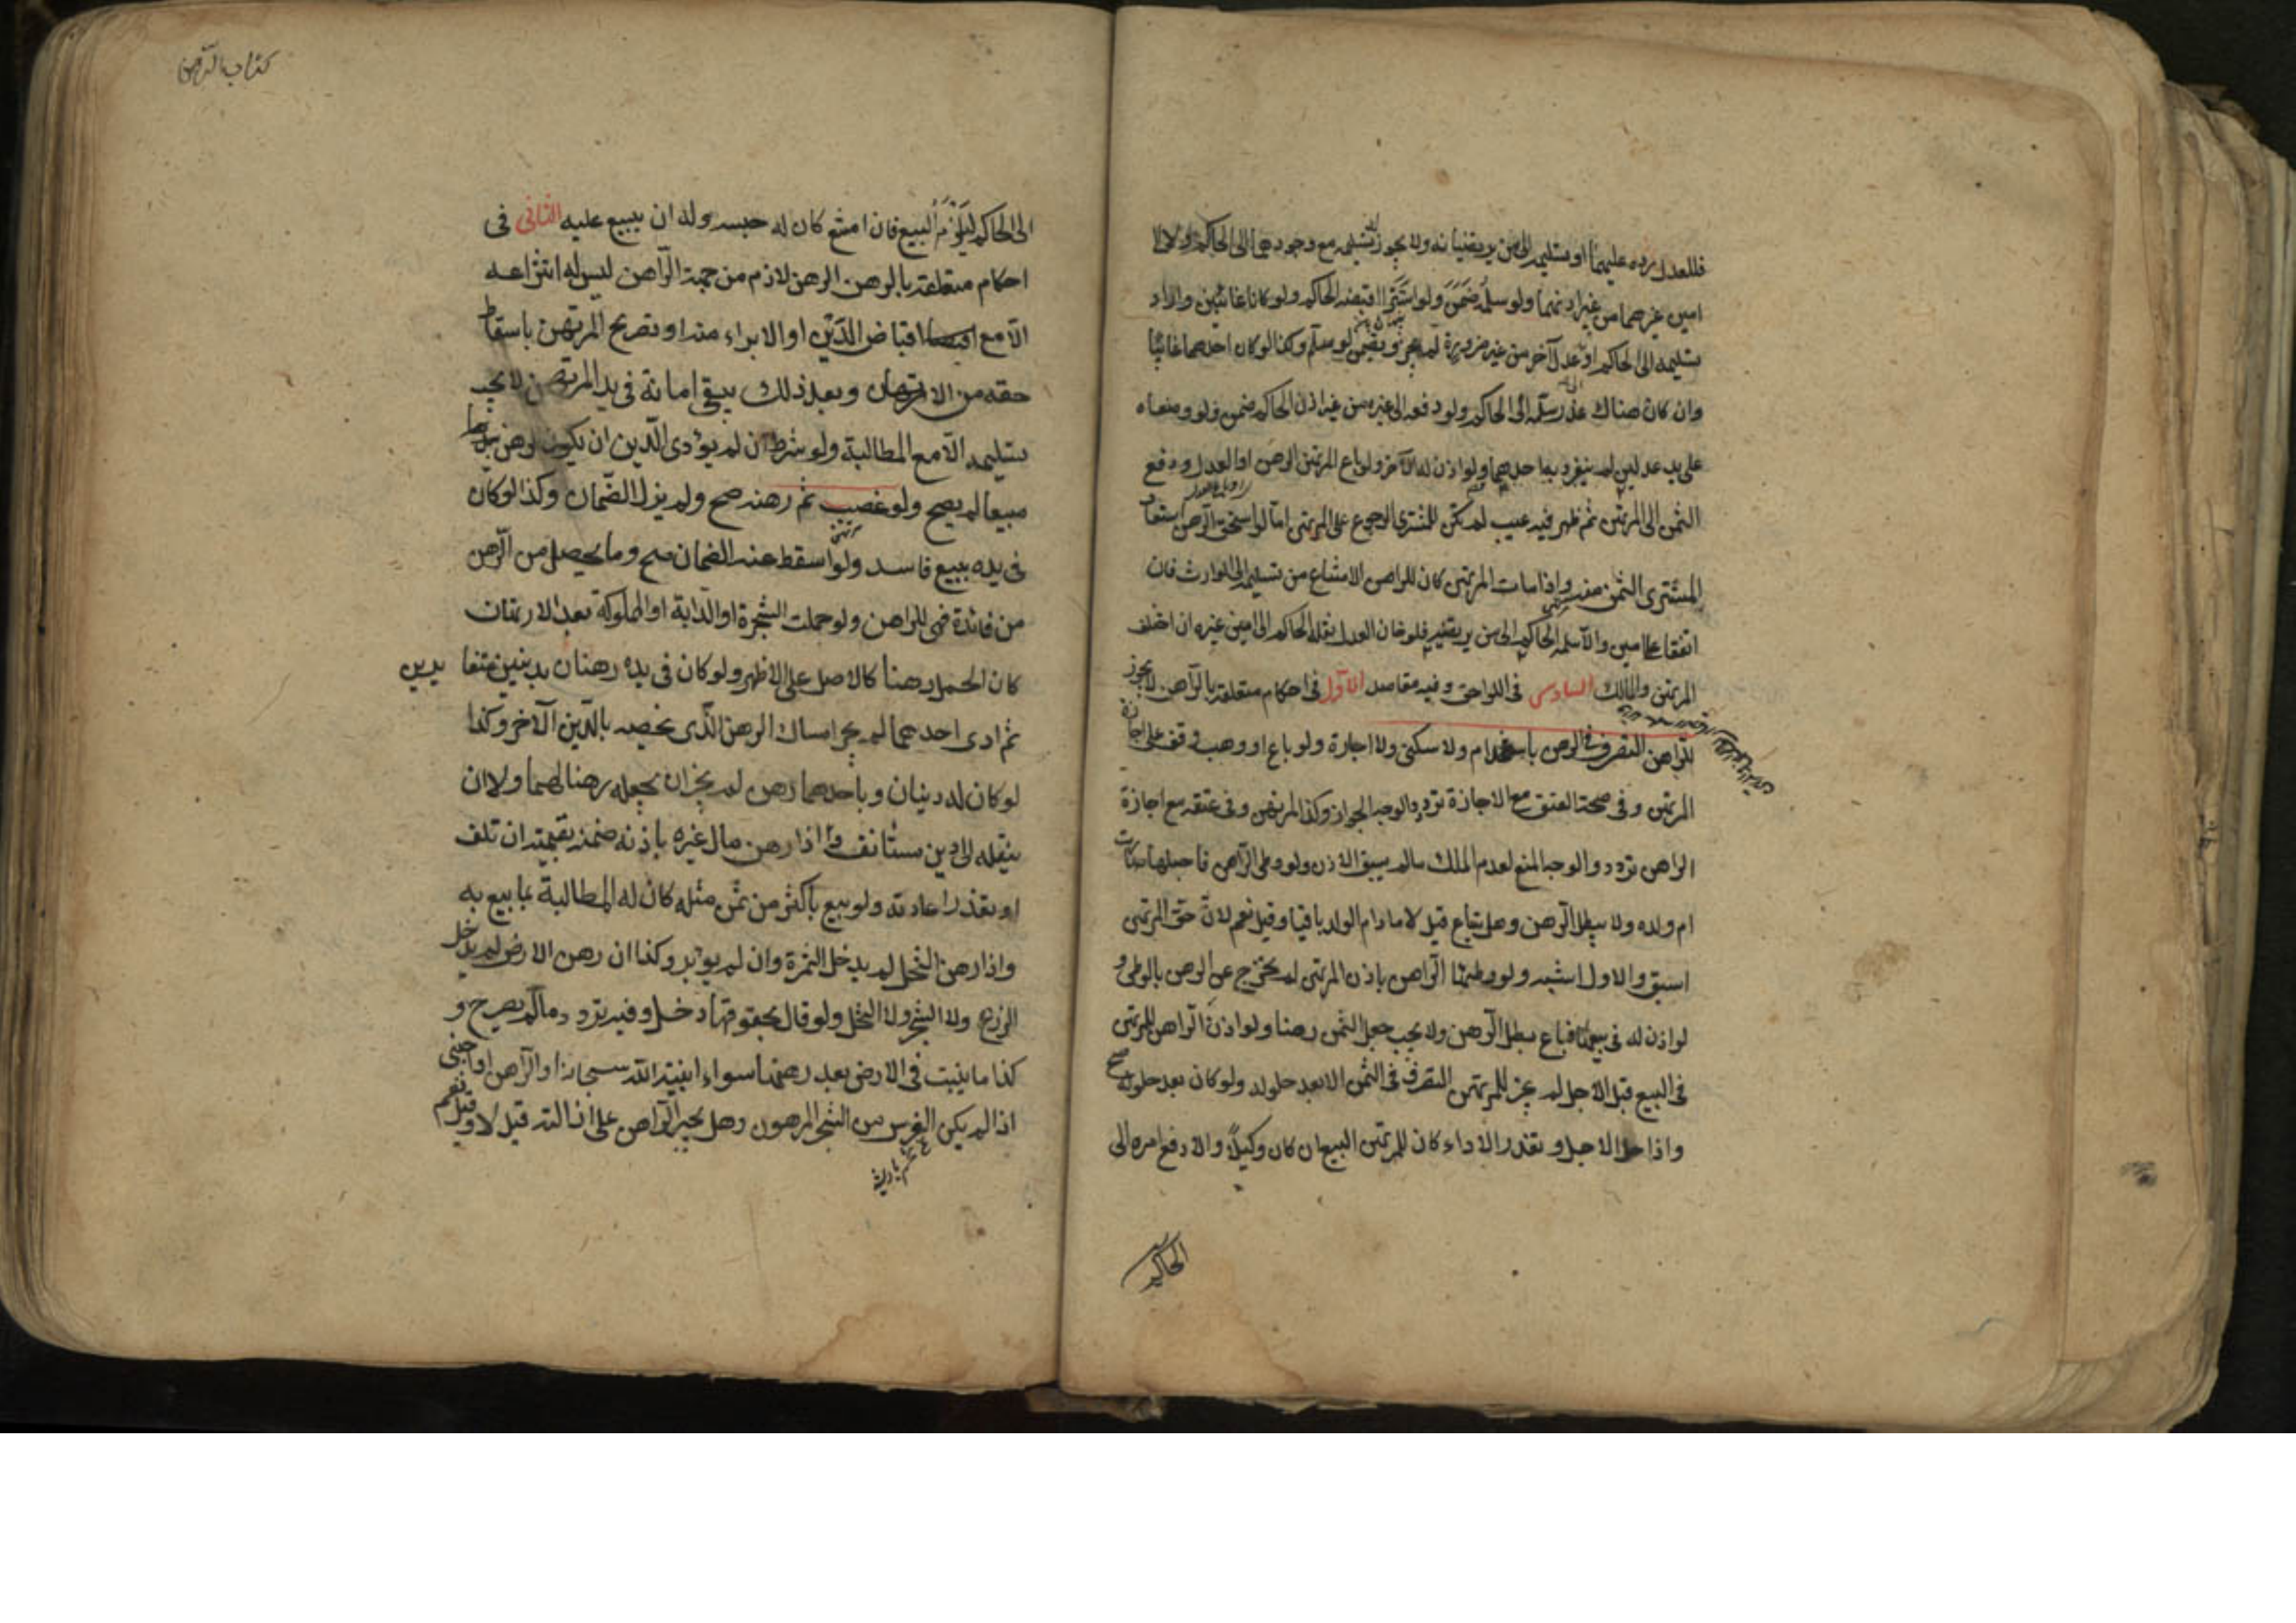 فللعدل رده عليهما او تسليمه الى من يرتضيانه ولا يجوز تسليمه مع وجودهما الى الحاكم ولا الى
امين غيرهما من غير اذنهما ولو سلمه ضمن ولو استترا اقبضه الحاكم ولو كانا غائبين واراد
تسليمه الى الحاكم او عدل آخر من غير ضرورة لم يجز ويضمن لو سلم وكذا لو كان احدهما غائبا
وان كان هناك عذر سلمه الى الحاكم ولو دفعه الى غيره من غير اذن الحاكم ضمن ولو وضعاه
على يد عدلين لم ينفرد به احدهما ولو اذن له الآخر ولو باع المرتهن الرهن او العدل ودفع
الثمن الى المرتهن ثم ظهر فيه عيب لم يكن للمشترى الرجوع على المرتهن اما لو استحق الرهن استعاد
المشترى الثمن منه واذا مات المرتهن كان للراهن الامتناع من تسليمه الى الوارث فان
اتفقا على امين والا سلمه الحاكم الى من يرتضيه فلو خان العدل نقله الحاكم الى امين غيره ان اختلف
المرتهن والمالك السادس فى اللواحق وفيه مقاصد الاول فى احكام متعلقة بالراهن لا يجوز
للراهن التصرف فى الرهن باستخدام ولا سكنى ولا اجارة ولو باع او وهب وقف على اجازة
المرتهن وفى صحة العتق مع الاجازة تردد والوجه الجواز وكذا المرتهن وفى عتقه مع اجازة
الراهن تردد والوجه المنع لعدم الملك مالم يسبق الاذن ولو وطى الراهن فاحبلها صارت
ام ولده ولا يبطل الرهن وهل تباع قيل لا مادام الولد باقيا وقيل نعم لان حق المرتهن
اسبق والاول اشبه ولو وطئها الراهن باذن المرتهن لم يخرج عن الرهن بالوطى و
لو اذن له فى بيعها فباع بطل الرهن ولا يجب جعل الثمن رهنا ولو اذن الراهن للمرتهن
فى البيع قبل الاجل لم يجز للمرتهن التصرف فى الثمن الا بعد حلوله ولو كان بعد حلوله صح
واذا حل الاجل وتعذر الاداء كان للمرتهن البيع ان كان وكيلا والا رفع امره الى
الحاكم
كتاب الرهن
الى الحاكم ليلزمه البيع فان امتنع كان له حبسه وله ان يبيع عليه الثانى فى
احكام متعلقة بالرهن الرهن لازم من جهة الراهن ليس له انتزاعه
الا مع اقباض الدين او الابراء منه او تصريح المرتهن باسقاط
حقه من الارتهان وبعد ذلك يبقى امانة فى يد المرتهن لا يجب
تسليمه الا مع المطالبة ولو شرط ان لم يؤدى الدين ان يكون الرهن
مبيعا لم يصح ولو غصب ثم رهنه صح ولم يزل الضمان وكذا لو كان
فى يده ببيع فاسد ولو اسقط عنه الضمان صح وما يحصل من الرهن
من فائدة فهى للراهن ولو حملت الشجرة او الدابة او المملوكة بعد الارتهان
كان الحمل رهنا كالاصل على الاظهر ولو كان فى يده رهنان بدينين متفا يدين
ثم ادى احدهما لم يجز امساك الرهن الذى يخصه بالدين الآخر وكذا
لو كان له دينان وباحدهما رهن لم يجز ان يجعله رهنا لهما ولا ان
ينقله الى دين مستأنف واذا رهن مال غيره باذنه ضمنه بقيمته ان تلف
او تعذر اعادته ولو بيع باكثر من ثمن مثله كان له المطالبة بما بيع به
واذا رهن النخل لم يدخل الثمرة وان لم يؤبر وكذا ان رهن الارض لم يدخل
الزرع ولا الشجر ولا النخل ولو قال بحقوقها دخل وفيه تردد مالم يصرح و
كذا ما ينبت فى الارض بعد رهنها سواء انبته الله سبحانه او الراهن او اجنبى
اذا لم يكن الغرس من الشجر المرهون وهل يجبر الراهن على ازالته قيل لا وقيل نعم